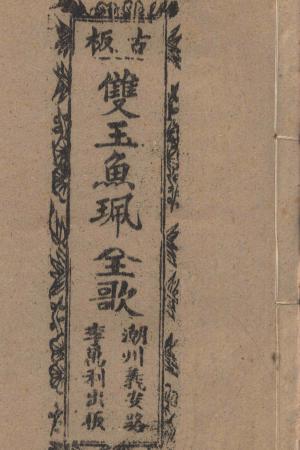 古板
雙玉魚珮全歌
潮州義安路
李萬利出板